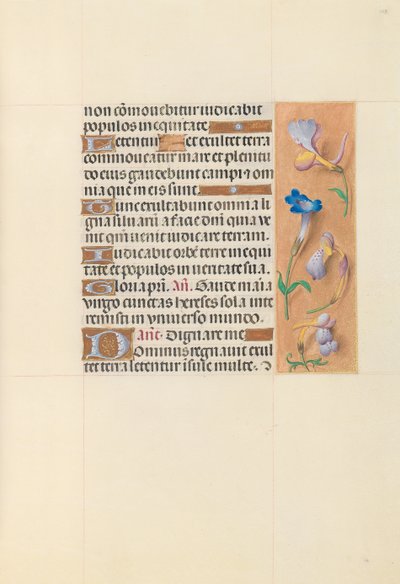 non cōmouebitur iudicabit
populos in equitate
Letentur et exultet terra
commoueatur mare et plenitu
do eius gaudebunt campi et om
nia que in eis sunt.
Tunc exultabunt omnia li
gna siluarū a facie dn̄i quia ve
nit qm̄ uenit iudicare terram.
Iudicabit orbē terre in equi
tate et populos in ueritate sua.
Gloria pr̄i. An̄. Gaude maria
virgo cunctas hereses sola inte
remisti in vniuerso mundo.
Ant̄. Dignare me
Dominus regnauit exul
tet terra letentur insule multe.